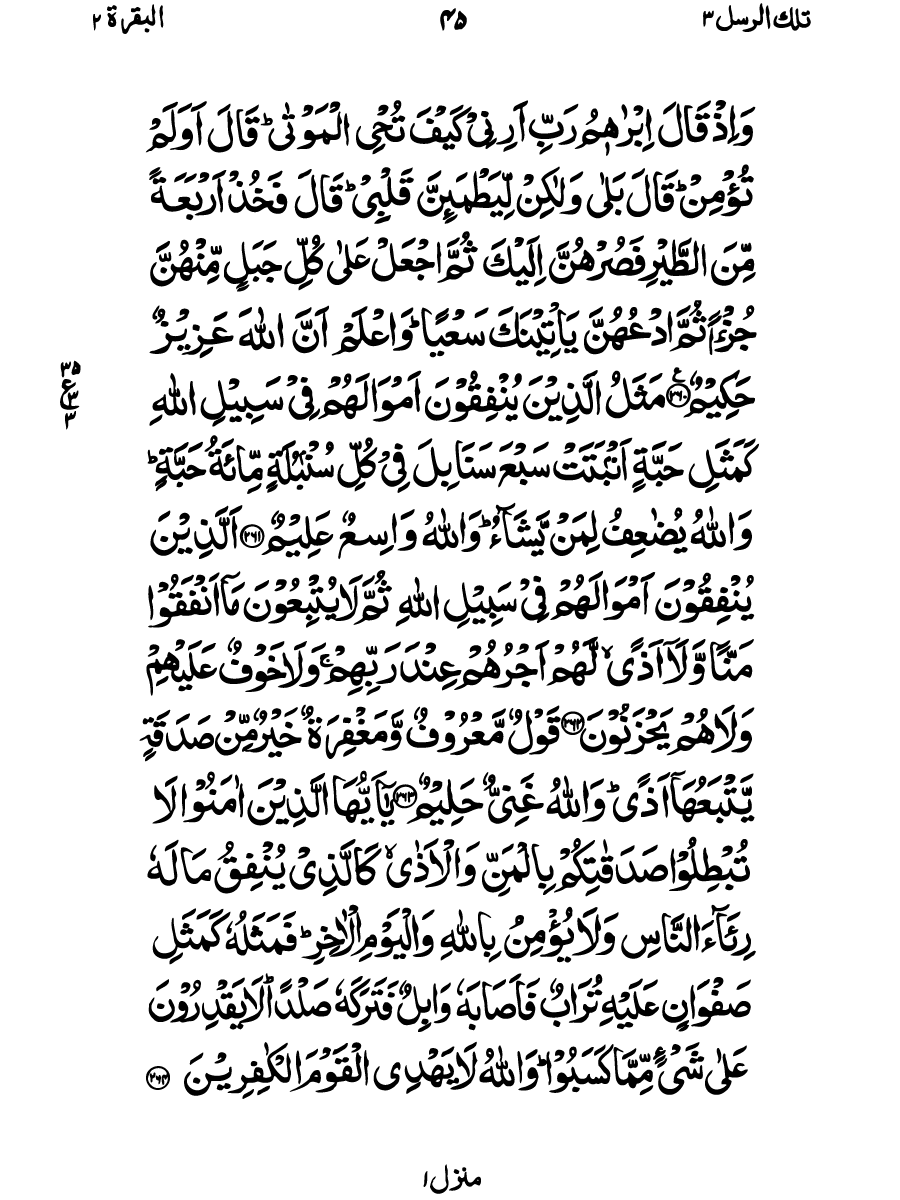 تلك الرسل ۳ ۴۵ البقرة ۲
وَاِذْ قَالَ اِبْرٰهٖمُ رَبِّ اَرِنِیْ كَیْفَ تُحْیِ الْمَوْتٰیؕ قَالَ اَوَلَمْ
تُؤْمِنْؕ قَالَ بَلٰی وَلٰكِنْ لِّیَطْمَىِٕنَّ قَلْبِیْؕ قَالَ فَخُذْ اَرْبَعَةً
مِّنَ الطَّیْرِ فَصُرْهُنَّ اِلَیْكَ ثُمَّ اجْعَلْ عَلٰی كُلِّ جَبَلٍ مِّنْهُنَّ
جُزْءًا ثُمَّ ادْعُهُنَّ یَاْتِیْنَكَ سَعْیًاؕ وَاعْلَمْ اَنَّ اللّٰهَ عَزِیْزٌ
حَكِیْمٌ۠ ﴿۲۶۰﴾ مَثَلُ الَّذِیْنَ یُنْفِقُوْنَ اَمْوَالَهُمْ فِیْ سَبِیْلِ اللّٰهِ
كَمَثَلِ حَبَّةٍ اَنْۢبَتَتْ سَبْعَ سَنَابِلَ فِیْ كُلِّ سُنْۢبُلَةٍ مِّائَةُ حَبَّةٍؕ
وَاللّٰهُ یُضٰعِفُ لِمَنْ یَّشَآءُؕ وَاللّٰهُ وَاسِعٌ عَلِیْمٌ ﴿۲۶۱﴾ اَلَّذِیْنَ
یُنْفِقُوْنَ اَمْوَالَهُمْ فِیْ سَبِیْلِ اللّٰهِ ثُمَّ لَا یُتْبِعُوْنَ مَاۤ اَنْفَقُوْا
مَنًّا وَّلَاۤ اَذًیۙ لَّهُمْ اَجْرُهُمْ عِنْدَ رَبِّهِمْۚ وَلَا خَوْفٌ عَلَیْهِمْ
وَلَا هُمْ یَحْزَنُوْنَ ﴿۲۶۲﴾ قَوْلٌ مَّعْرُوْفٌ وَّمَغْفِرَةٌ خَیْرٌ مِّنْ صَدَقَةٍ
یَّتْبَعُهَاۤ اَذًیؕ وَاللّٰهُ غَنِیٌّ حَلِیْمٌ ﴿۲۶۳﴾ یٰۤاَیُّهَا الَّذِیْنَ اٰمَنُوْا لَا
تُبْطِلُوْا صَدَقٰتِكُمْ بِالْمَنِّ وَالْاَذٰیۙ كَالَّذِیْ یُنْفِقُ مَالَهٗ
رِئَآءَ النَّاسِ وَلَا یُؤْمِنُ بِاللّٰهِ وَالْیَوْمِ الْاٰخِرِؕ فَمَثَلُهٗ كَمَثَلِ
صَفْوَانٍ عَلَیْهِ تُرَابٌ فَاَصَابَهٗ وَابِلٌ فَتَرَكَهٗ صَلْدًاؕ لَا یَقْدِرُوْنَ
عَلٰی شَیْءٍ مِّمَّا كَسَبُوْاؕ وَاللّٰهُ لَا یَهْدِی الْقَوْمَ الْكٰفِرِیْنَ ﴿۲۶۴﴾
۳۵
ع
۳
۳
منزل ۱